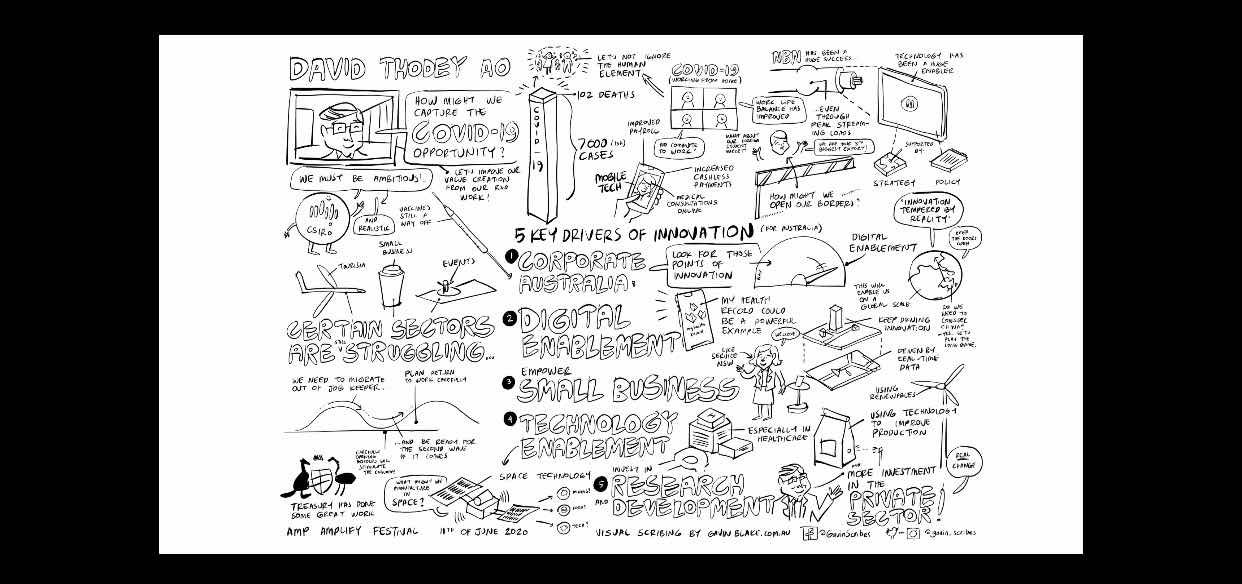 DAVID THODEY AO
HOW MIGHT WE
CAPTURE THE
COVID-19
OPPORTUNITY?
LET'S IMPROVE OUR
VALUE CREATION
FROM OUR R&D
WORK!
WE MUST BE AMBITIOUS!
AND
REALISTIC
CSIRO
VACCINE'S
STILL A
WAY OFF
TOURISM
SMALL
BUSINESS
EVENTS
CERTAIN SECTORS
ARE STILL STRUGGLING...
WE NEED TO MIGRATE
OUT OF JOB KEEPER.
PLAN RETURN
TO WORK CAREFULLY
...AND BE READY FOR
THE SECOND WAVE
IF IT COMES
TREASURY HAS DONE
SOME GREAT WORK
LET'S NOT IGNORE
THE HUMAN
ELEMENT
102 DEATHS
COVID
19
7000 (ISH)
CASES
COVID-19
(WORKING FROM HOME)
WORK LIFE
BALANCE HAS
IMPROVED
NO COMMUTE
TO WORK!
IMPROVED
PAYROLL
MOBILE
TECH
INCREASED
CASHLESS
PAYMENTS
MEDICAL
CONSULTATIONS
ONLINE
NBN HAS BEEN A
HUGE SUCCESS...
...EVEN
THROUGH
PEAK STREAM-
ING LOADS
TECHNOLOGY HAS
BEEN A HUGE
ENABLER
SUPPORTED
BY
STRATEGY
POLICY
HOW MIGHT WE
OPEN OUR BORDERS?
5 KEY DRIVERS OF INNOVATION (FOR AUSTRALIA)
1 CORPORATE
AUSTRALIA
LOOK FOR THOSE
POINTS OF
INNOVATION
DIGITAL
ENABLEMENT
"INNOVATION
TEMPERED BY
REALITY"
THIS WILL
ENABLE US
ON A
GLOBAL SCALE
2 DIGITAL
ENABLEMENT
MY HEALTH
RECORD COULD
BE A POWERFUL
EXAMPLE
LIKE
SERVICE
NSW
KEEP DRIVING
INNOVATION
DRIVEN BY
REAL-TIME
DATA
USING
RENEWABLES
EMPOWER
3 SMALL BUSINESS
4 TECHNOLOGY
ENABLEMENT
ESPECIALLY IN
HEALTHCARE
USING TECHNOLOGY
TO IMPROVE
PRODUCTION
SPACE TECHNOLOGY
WHAT MIGHT WE
MANUFACTURE
IN
SPACE?
INVEST IN
5 RESEARCH
AND DEVELOPMENT
MORE INVESTMENT
IN THE
PRIVATE
SECTOR!
REAL
CHANGE
AMP AMPLIFY FESTIVAL
OF JUNE 2020
VISUAL SCRIBING BY GAVINBLAKE.COM.AU
@GavinScribes
@gavin.scribes